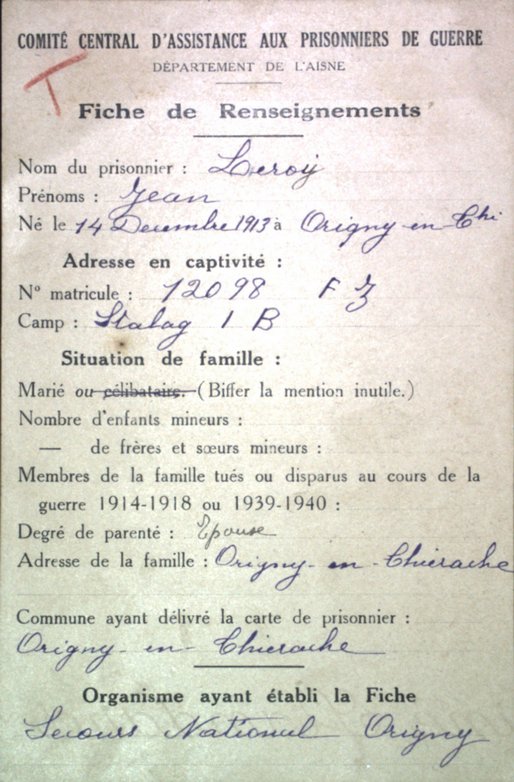 COMITÉ CENTRAL D'ASSISTANCE AUX PRISONNIERS DE GUERRE
DÉPARTEMENT DE L'AISNE
T
Fiche de Renseignements
Nom du prisonnier : Leroy
Prénoms : Jean
Né le 14 Decembre 1913 à Origny-en-Thi
Adresse en captivité :
N° matricule : 12098 F Z
Camp : Stalag I B
Situation de famille :
Marié ou célibataire. (Biffer la mention inutile.)
Nombre d'enfants mineurs :
— de frères et sœurs mineurs :
Membres de la famille tués ou disparus au cours de la
guerre 1914-1918 ou 1939-1940 :
Degré de parenté : Epouse
Adresse de la famille : Origny-en-Thiérache
Commune ayant délivré la carte de prisonnier :
Origny-en-Thierache
Organisme ayant établi la Fiche
Secours National Origny